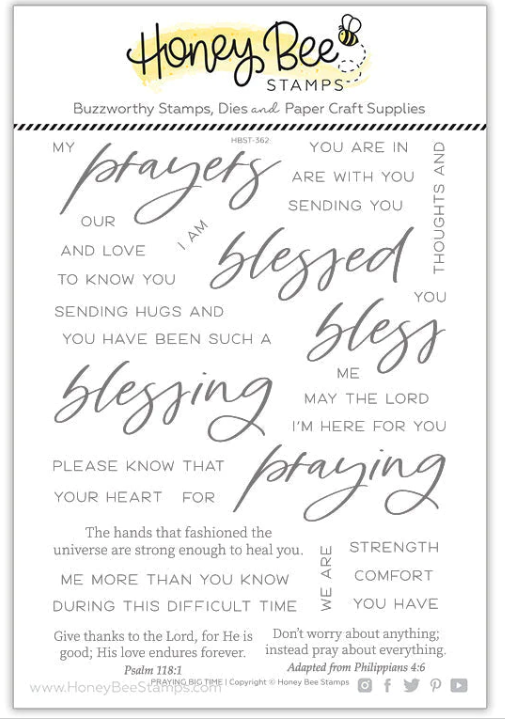 Honey Bee
STAMPS
Buzzworthy Stamps, Dies and Paper Craft Supplies
HBST-362
MY
prayers
YOU ARE IN
ARE WITH YOU
SENDING YOU
THOUGHTS AND
OUR
I AM
blessed
AND LOVE
TO KNOW YOU
YOU
SENDING HUGS AND
bless
YOU HAVE BEEN SUCH A
blessing
ME
MAY THE LORD
I'M HERE FOR YOU
PLEASE KNOW THAT
praying
YOUR HEART
FOR
The hands that fashioned the
universe are strong enough to heal you.
WE ARE
STRENGTH
ME MORE THAN YOU KNOW
COMFORT
DURING THIS DIFFICULT TIME
YOU HAVE
Give thanks to the Lord, for He is
good; His love endures forever.
Psalm 118:1
Don't worry about anything;
instead pray about everything.
Adapted from Philippians 4:6
www.HoneyBeeStamps.com
PRAYING BIG TIME | Copyright © Honey Bee Stamps